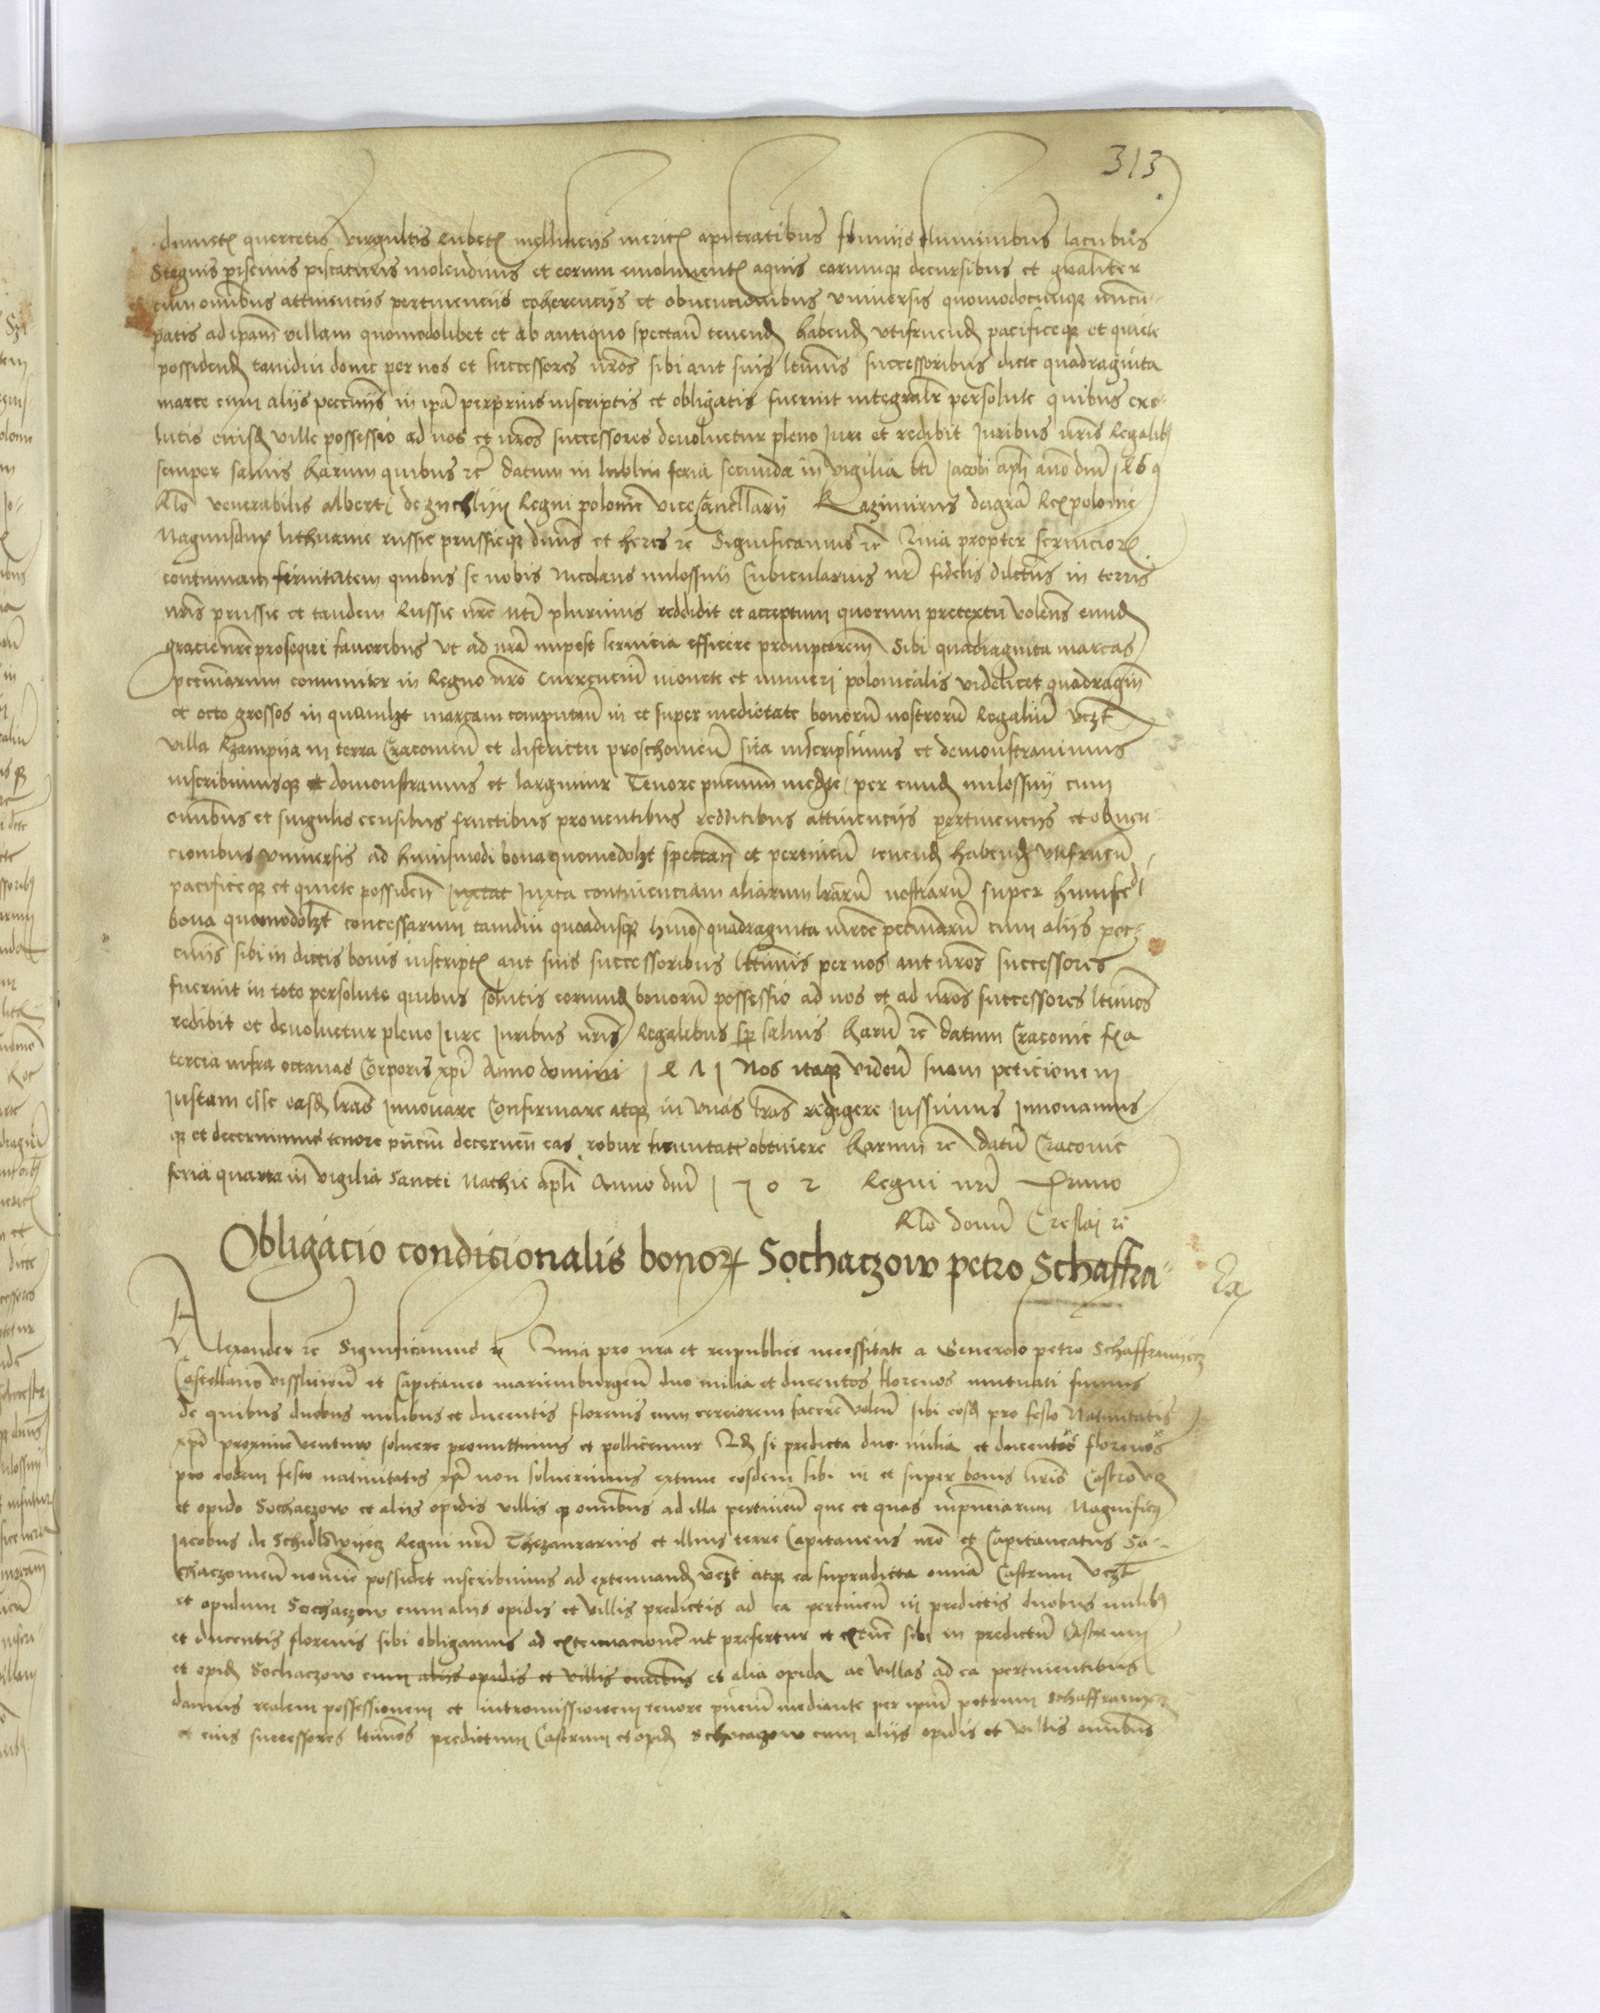 313
dumetis quercetis virgultis rubetis mellificiis mericis aputeatibus fluviis fluminibus lacubus
Stagnis piscinis piscaturis molendinis et eorum emolumentis aquis earumque decursibus et gnaliter
cum omnibus attinenciis pertinenciis coherenciis et obvencionibus universis quomodocunque nuncu-
patis ad ipam villam quomodolibet et ab antiquo spectan tenend habend utifruend pacificeque et quiete
possidend tamdiu donec per nos et successores nros sibi aut suis ltimis successoribus dicte quadraginta
marce cum aliis pecuniis in ipa perprius inscriptis et obligatis fuerint integralr persolute quibus exo-
lutis eiusd ville possessio ad nos et nros successores devolvetur pleno Jure et redibit Juribus nris Regalibus
semper salvis harum quibus rc datum in lublin feria secunda in vigilia bti Jacobi apli ano dni
Rlo venerabilis alberti de Regni polonie vicecancellarii Kazimirus dei gra Rex polonie
Magnusdux lithuanie russie prussieque dnus et heres rc Significamus rc Quia propter serviciorum
continuam fervitatem quibus se nobis Nicolaus milossny Cubicularius nr fidelis dilectus in terris
nris prussie et tandem Russie nre uti plurimis reddidit et acceptum quorum pretextu volens eund
gracie nre prosequi favoribus ut ad nra inpost servicia efficere prompciorem Sibi quadraginta marcas
pecuniarum communiter in Regno nro currencium monete et numeri polonicalis videlicet quadragin
et octo grossos in quamlzt marcam computan in et super medietate bonorum nostrorum Regalium vczt
villa in terra Cracovien et districtu proschovien sita inscripsimus et demonstravimus
inscribimusque et demonstramus et largimur Tenore pntium medte per eund milossny cum
omnibus et singulis censibus fructibus proventibus redditibus attinenciis pertinenciis et obven-
cionibus universis ad huiusmodi bona quomodolzt spectan et pertinen tenend habend utifruend
pacificeque et quiete possiden Juxtat Juxta continenciam aliarum lrarum nostrarum super huiusmodi
bona quomodolzt concessarum tamdiu quoadusque hmoi quadraginta marce pecuniarum cum aliis pec-
cuniis sibi in dictis bonis inscriptis aut suis successoribus lttimis per nos aut nros successores
fuerint in toto persolute quibus solutis eorund bonorum possessio ad nos et ad nros successores ltimos
redibit et devolvetur pleno Jure Juribus nris Regalibus sp salvis harum rc datum Cracovie fia
tercia infra octavas Corporis xpi Anno domini Nos itaque viden suam peticionem
Justam esse easd lras Innovare Confirmare atque in unas lras redigere Jussimus Innovamus
que et decernimus tenore pntium decernen eas robur firmitatis obtinere harum rc datum Cracovie
feria quarta in vigilia Sancti Mathie apli Anno dni 1502 Regni nri Primo
Rlo domi Creslai rc
Obligacio condicionalis bonorum Sochaczow petro Schaffra-
Alexander rc Significamus rc Quia pro nra et reipublice necessitate a Generoso petro Schaffranyecz
Castellano visslicien et Capitaneo mariemburgen duo milia et ducentos florenos mutuati sumus
de quibus duobus milibus et ducentis florenis eum cerciorem facere volen sibi eosd pro festo Nativitatis
xpi proxime venturo solvere promittimus et pollicemur Qd si predicta duo milia et ducentos florenos
pro eodem festo nativitatis xpi non solverimus extunc eosdem sibi in et super bonis nris Castro vcz
et opido Sochaczow et aliis opidis villis que omnibus ad illa pertinen que et quas inpnciarum Magnificus
Jacobus de Schidlowyecz Regni nri Thezaurarius et illius terre Capitaneus nro et Capitaneatus So-
chaczovien nomine possidet inscribimus ad extenuand vczt atque ea supradicta omnia Castrum vczt
et opidum Sochaczow cum aliis opidis et villis predictis ad ea pertinen in predictis duobus milibus
et ducentis florenis sibi obligamus ad extenuacione ut prefertur et extunc sibi in predictum Castrum
et opid Sochaczow cum aliis opidis et villis omnibus et alia opida ac villas ad ea pertinentibus
damus realem possessionem et intromissionem tenore pntium mediante per ipum petrum Schaffranyecz
et eius successores ltimos predictum Castrum et opid Schocazow cum aliis opidis et villis omnibus